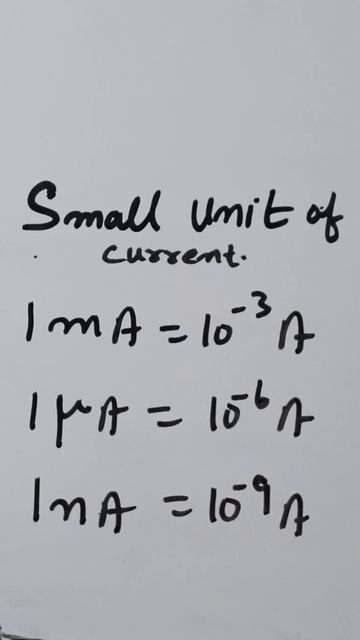 Small Unit of
current.
1 mA = 10⁻³ A
1 μA = 10⁻⁶ A
1 nA = 10⁻⁹ A